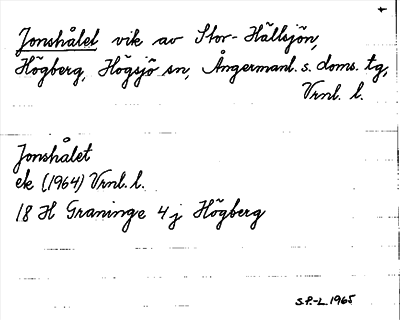 Jonshålet vik av Stor-Hällsjön,
Högberg, Högsjö sn, Ångermanl. s. doms. tg,
Vrnl. l.
Jonshålet
ek (1964) Vrnl. l.
18 H Graninge 4 j Högberg
S.P.-L. 1965